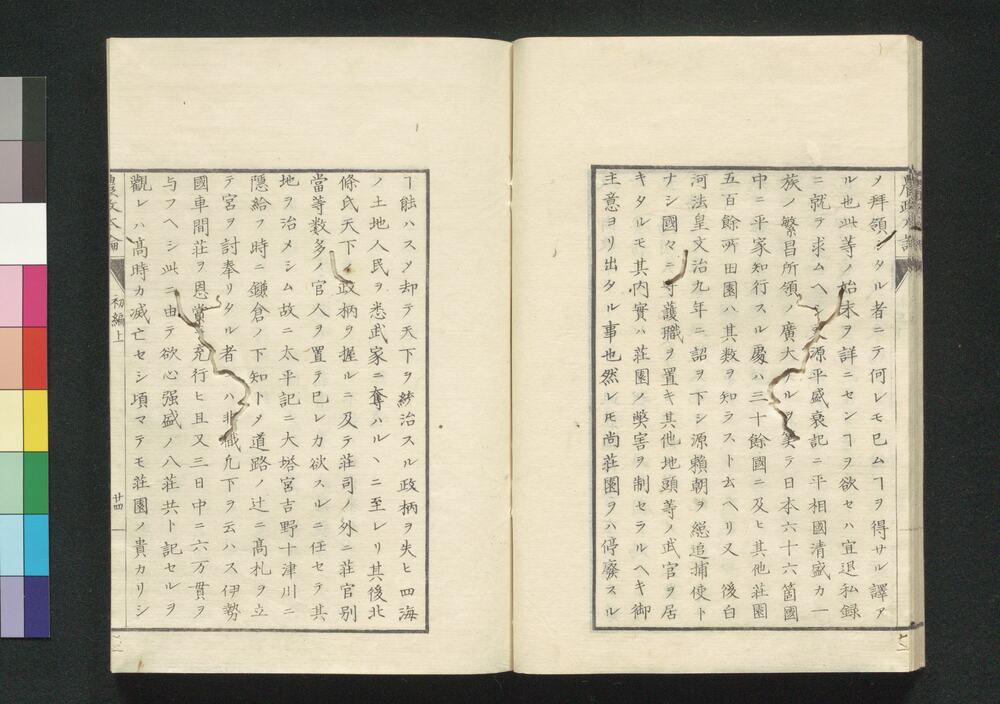 ノ拜領シタル者ニテ何レモ已ムヿヲ得サル譯ア
ル也此等ノ始末ヲ詳ニセンヿヲ欲セハ宜退私録
ニ就テ求ムヘシ源平盛衰記ニ平相國清盛カ一
族ノ繁昌所領ノ廣大ナルヲ筭テ日本六十六箇國
中ニ平家知行スル處ハ三十餘國ニ及ヒ其他莊園
五百餘所田園ハ其数ヲ知ラスト云ヘリ又後白
河法皇文治九年ニ詔ヲ下シ源頼朝ヲ總追捕使ト
ナシ國々ニ守護職ヲ置キ其他地頭等ノ武官ヲ居
キタルモ其内實ハ莊園ノ奬害ヲ制セラルヘキ御
主意ヨリ出タル事也然レモ尚莊園ヲハ停廢スル
ヿ能ハスメ却テ天下ヲ紗治スル政柄ヲ失ヒ四海
ノ土地人民ヲ悉武家ニ奪ハルヽニ至レリ其後北
條氏天下ノ政柄ヲ握ルニ及テ莊司ノ外ニ莊官別
當等数多ノ官人ヲ置テ已レカ欲スルニ任セテ其
地ヲ治メシム故ニ太平記ニ大塔宮吉野十津川ニ
隠給フ時ニ鎌倉ノ下知トメ道路ノ辻ニ髙札ヲ立
テ宮ヲ討奉リタル者ハ非職凢下ヲ云ハス伊勢
國車間莊ヲ恩賞充行ヒ且又三日中ニ六万貫ヲ
与フヘシ此ニ由テ欲心强盛ノ八莊共ト記セルヲ
觀レハ髙時カ滅亡セシ頃マテモ莊園ノ貴カリシ
初編上
廿四